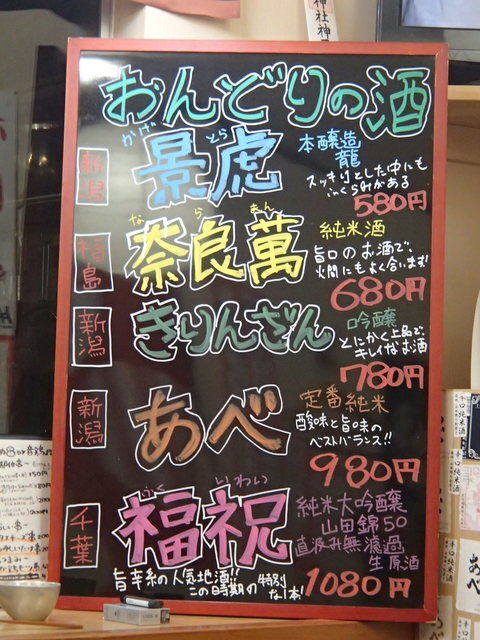 おんどりの酒
新潟
かげ とら
景虎
本醸造
龍
スッキリとした中にも
ふくらみがある
580円
福島
な ら まん
奈良萬
純米酒
旨口のお酒で、
火間にもよく合います!
680円
新潟
きりんざん
吟醸
とにかく上品で、
キレイなお酒
780円
新潟
あべ
定番純米
酸味と旨味の
ベストバランス!!
980円
千葉
ふく いわい
福祝
純米大吟醸
山田錦50
直汲み無濾過
生原酒
旨辛系の人気地酒!!
この時期の特別
な1本!
1080円
辛口純米酒
あべ